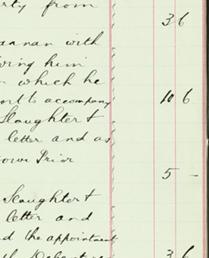 rty from 3 6
aanan with
iving him
n which he
ort to accompany 10 6
Slaughter &
letter and as
Prior
5 –
Slaughter &
letter and
d the appointment
3 6